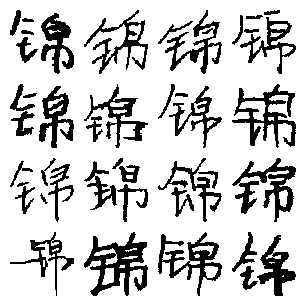 锦锦锦锦
锦锦锦锦
锦锦锦锦
锦锦锦锦